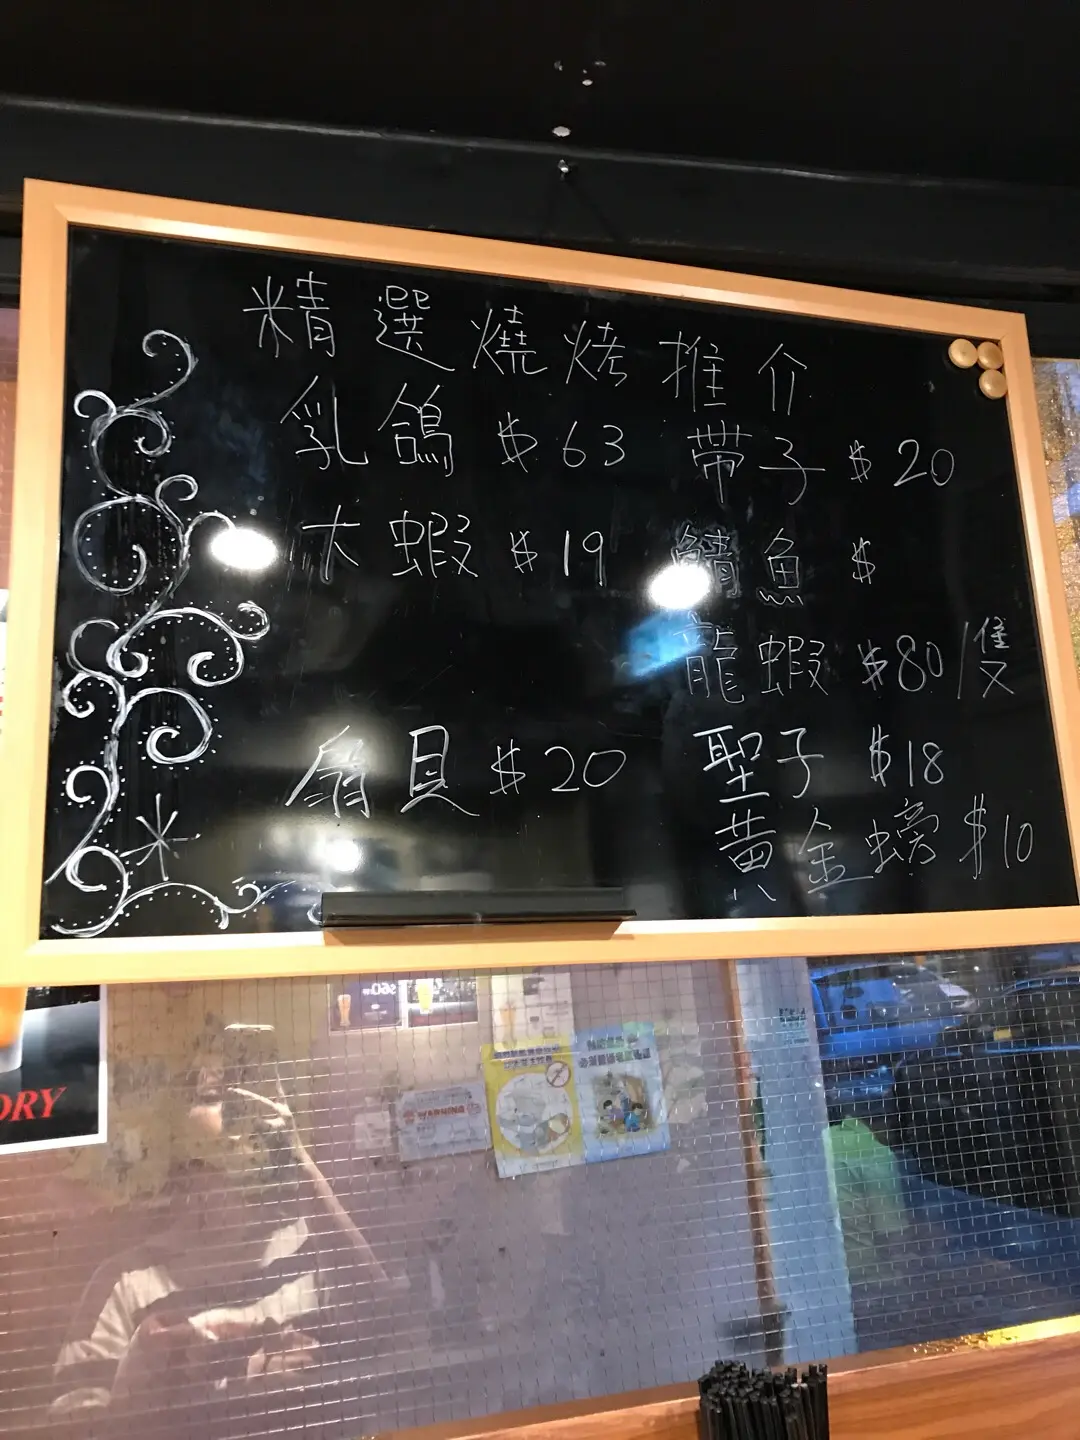 精選燒烤推介
乳鴿 $63 帶子 $20
大蝦 $19 鯖魚 $
龍蝦 $80/隻
扇貝 $20 聖子 $18
黃金螃 $10
ORY
WARNING
$60